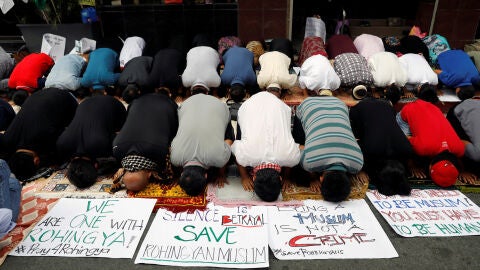 WE
ARE ONE WITH
ROHINGYA!
#Pray4Rohingya
SILENCE is BETRAYAL
SAVE
ROHINGYAN MUSLIM
BEING A
MUSLIM
IS NOT A
CRIME
TO BE MUSLIM
YOU JUST HAVE
TO BE HUMAN!